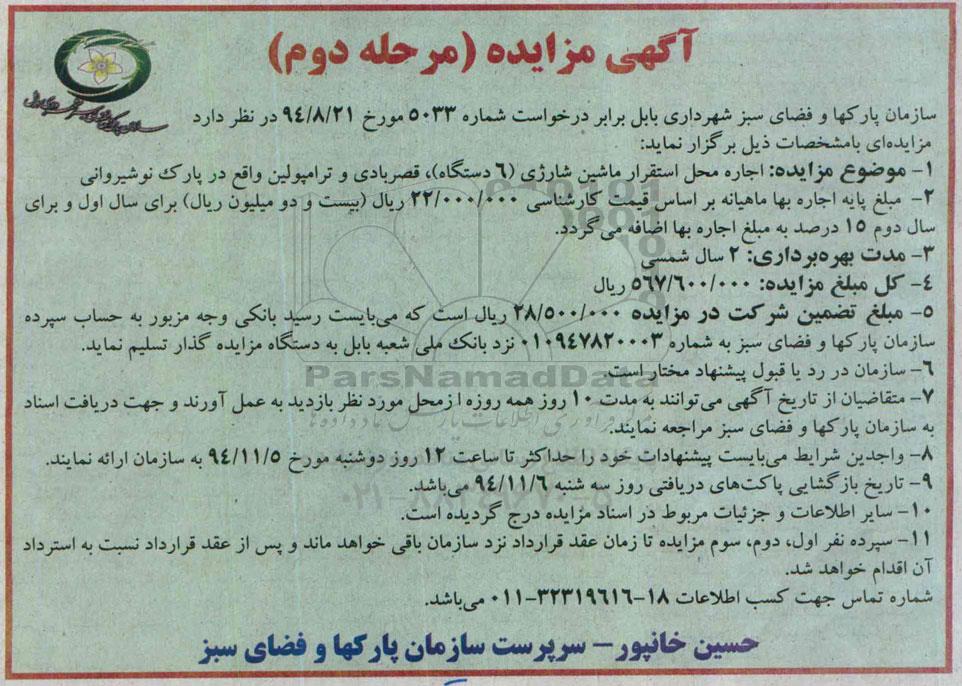 آگهی مزایده (مرحله دوم)
سازمان پارکها و فضای سبز شهرداری بابل برابر درخواست شماره ۵۰۳۳ مورخ ۹۴/۸/۲۱ در نظر دارد
مزایده‌ای بامشخصات ذیل برگزار نماید:
۱- موضوع مزایده: اجاره محل استقرار ماشین شارژی (۶ دستگاه)، قصربادی و ترامپولین واقع در پارک نوشیروانی
۲- مبلغ پایه اجاره بها ماهیانه بر اساس قیمت کارشناسی ۲۲/۰۰۰/۰۰۰ ریال (بیست و دو میلیون ریال) برای سال اول و برای
سال دوم ۱۵ درصد به مبلغ اجاره بها اضافه می گردد.
۳- مدت بهره‌برداری: ۲ سال شمسی
۴- کل مبلغ مزایده: ۵۶۷/۶۰۰/۰۰۰ ریال
۵- مبلغ تضمین شرکت در مزایده ۲۸/۵۰۰/۰۰۰ ریال است که می‌بایست رسید بانکی وجه مزبور به حساب سپرده
سازمان پارکها و فضای سبز به شماره ۰۱۰۹۴۷۸۲۰۰۰۳ نزد بانک ملی شعبه بابل به دستگاه مزایده گذار تسلیم نماید.
ParsNamadData
۶- سازمان در رد یا قبول پیشنهاد مختار است.
۷- متقاضیان از تاریخ آگهی می‌توانند به مدت ۱۰ روز همه روزه ازمحل مورد نظر بازدید به عمل آورند و جهت دریافت اسناد
به سازمان پارکها و فضای سبز مراجعه نمایند.
۸- واجدین شرایط می‌بایست پیشنهادات خود را حداکثر تا ساعت ۱۲ روز دوشنبه مورخ ۹۴/۱۱/۵ به سازمان ارائه نمایند.
۹- تاریخ بازگشایی پاکت‌های دریافتی روز سه شنبه ۹۴/۱۱/۶ می‌باشد.
۱۰- سایر اطلاعات و جزئیات مربوط در اسناد مزایده درج گردیده است.
۱۱- سپرده نفر اول، دوم، سوم مزایده تا زمان عقد قرارداد نزد سازمان باقی خواهد ماند و پس از عقد قرارداد نسبت به استرداد
آن اقدام خواهد شد.
شماره تماس جهت کسب اطلاعات ۱۸-۳۲۳۱۹۶۱۶-۰۱۱ می‌باشد.
حسین خانپور- سرپرست سازمان پارکها و فضای سبز